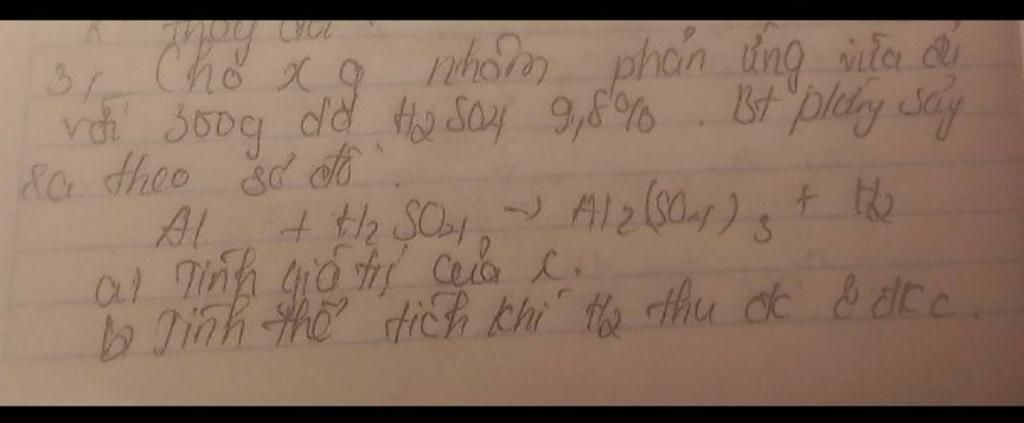 thay đổi
3, Cho x g nhôm phản ứng vừa đủ
với 300g dd H2SO4 9,8%. Bt pứ xảy
ra theo sơ đồ:
Al + H2SO4 → Al2(SO4)3 + H2
a) Tính giá trị của x.
b) Tính thể tích khí H2 thu đc ở đkc.